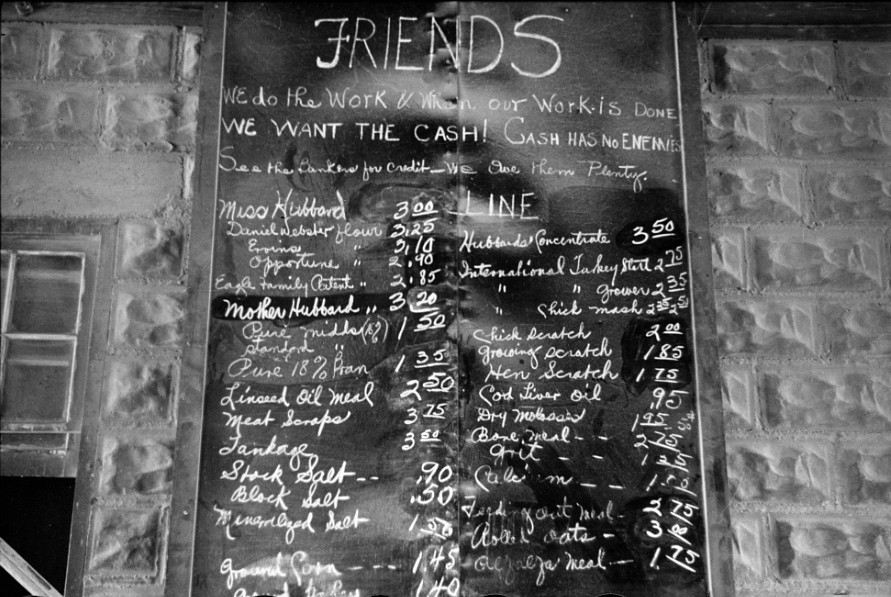 FRIENDS
WE do the Work & When our Work is DONE
WE WANT THE CASH! CASH HAS NO ENEMIES
See the Bankers for credit - We Owe them Plenty.
Miss Hubbard 3.00
Daniel Webster flour 3.25
" 3.10
Opportune " 2.90
Eagle Family Patent " 2.85
Mother Hubbard " 3.20
Pure Midds 1.50
Standard "
Pure 18% Bran 1.35
Linseed Oil Meal 2.50
Meat Scraps 3.75
Tankage 3.50
Stock Salt -- .90
Block Salt .50
Mineralized Salt
Ground Corn - 1.45
1.40
LINE
Hubbards Concentrate 3.50
International Turkey Start 2.75
" " grower 2.35
" Chick mash
Chick Scratch 2.00
Growing Scratch 1.85
Hen Scratch 1.75
Cod Liver Oil .95
Dry Molasses 1.95
Bone Meal - -
Grit - -
Calcium - -
Meal - 2.75
Rolled Oats -
Alfalfa Meal - 1.75